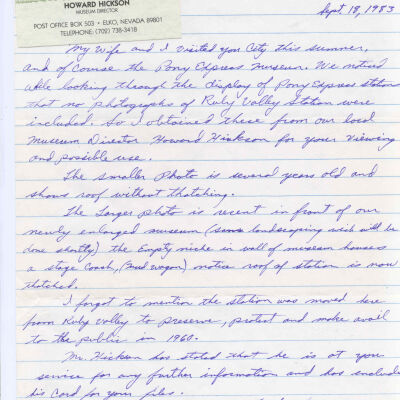 HOWARD HICKSON
MUSEUM DIRECTOR
POST OFFICE BOX 503 • ELKO, NEVADA 89801
TELEPHONE: (702) 738-3418
Sept. 18, 1983
My Wife and I visited you City this summer,
and of Course the Pony Express Museum. We noticed
while looking through the display of Pony Express stations
that no photographs of Ruby Valley Station were
included. So I obtained these from our local
Museum Director Howard Hickson for your viewing
and possible use.
The smaller Photo is several years old and
shows roof without thatching.
The Larger photo is recent in front of our
newly enlarged museum (some landscaping wish will be
done shortly) the Empty niche in wall of museum houses
a stage Coach, (mud wagon) notice roof of station is now
thatched.
I forgot to mention the station was moved here
from Ruby Valley to preserve, protect and make avail
to the public in 1960.
Mr. Hickson has stated that he is at your
service for any further information and has include
his Card for your files.